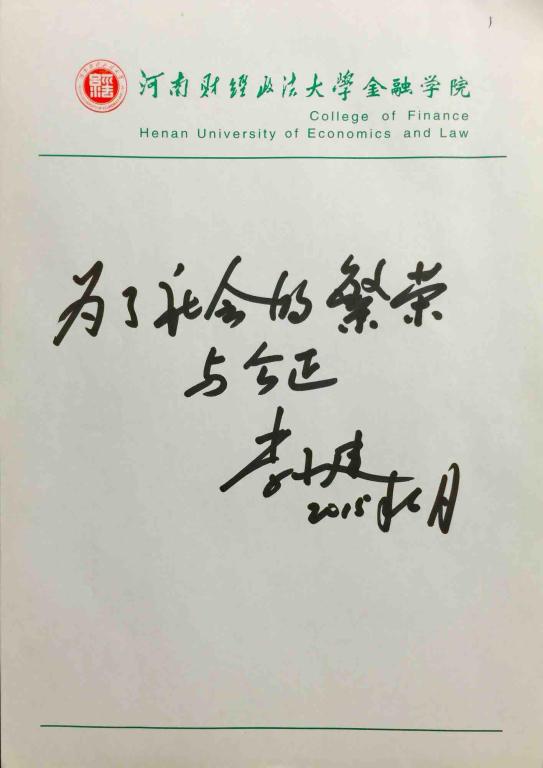 河南财经政法大學金融学院
College of Finance
Henan University of Economics and Law
为了社会的繁荣
与公正
李小建
2015年6月